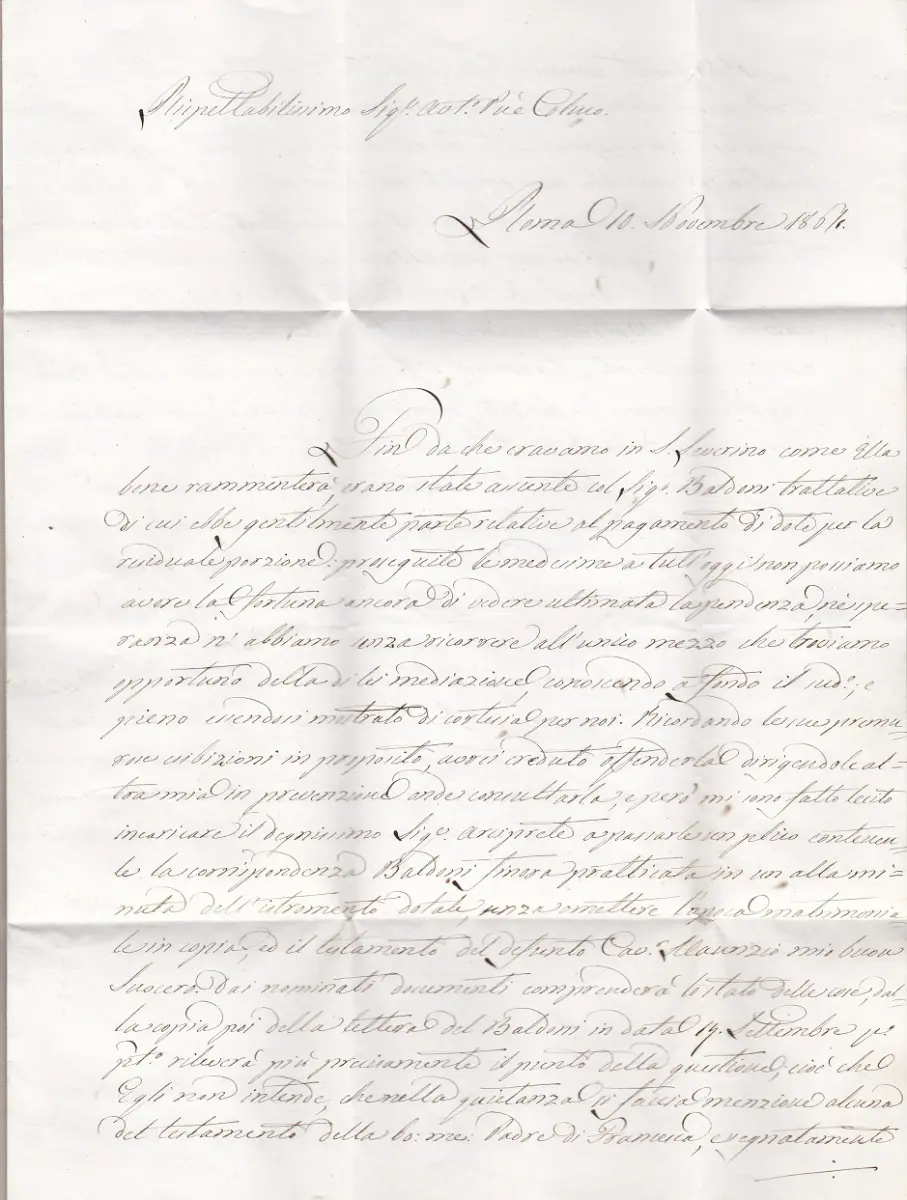 Rispettabilissimo Sigr. Avto. Prè Colmo.
Roma 10. Novembre 186
Fin da che eravamo in S. Severino come Ella
bene rammenterà, erano state accente col Sigr. Baldoni trattative
di cui ebbe gentilmente parte relative al pagamento di dote per la
residuale porzione: proseguite le medesime a tutt'oggi non possiamo
avere la fortuna ancora di vedere ultimata la pendenza, nè spe=
ranza n'abbiamo senza ricorrere all'unico mezzo che troviamo
opportuno della di lei mediazione, conoscendo a fondo il sudo.; e
pieno essendosi mostrato di cortesia per noi. Ricordando le sue premu=
rose esibizioni in proposito, avrei creduto offenderla dirigendole al=
tra mia in prevenzione onde consultarla, e però mi sono fatto lecito
incaricare il degnissimo Sigr. Arciprete a passarle un plico contenen=
te la corrispondenza Baldoni finora pratticata in un alla mi=
nuta dell'istromento dotale, senza omettere l'apoca matrimonia=
le in copia, ed il testamento del defunto Cavr. Maurizio mio buon
Suocero. Dai nominati documenti comprenderà lo stato delle cose, dal=
la copia poi della lettera del Baldoni in data 19. Settembre po.
pto. rileverà più precisamente il punto della questione, cioè che
Egli non intende, che nella quietanza si faccia menzione alcuna
del testamento della bo: me: Padre di Francesca, e segnatamente